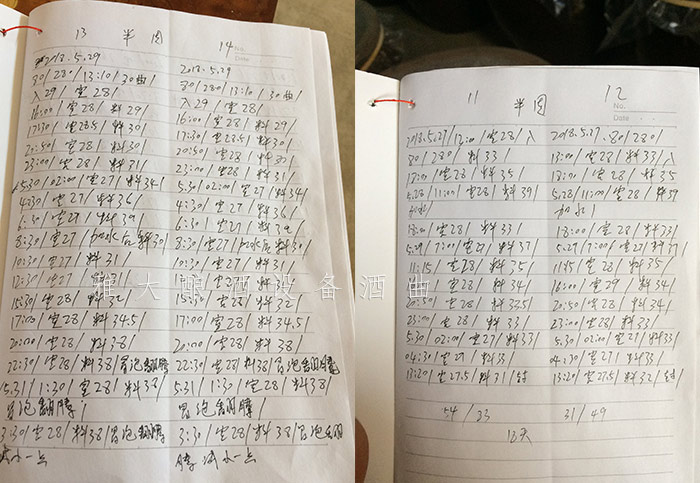 13 半肉 14
No.
Date
2018.5.29
30/28°/13:10/30曲/
入29/室28/
16:00/室28/料29/
17:30/室28.5/料30/
20:50/室28/料30/
23:00/室28/料31/
5.30/02:00/室27/料34/
4:30/室27/料36/
6:30/室27/料39/
8:30/室27/加水后料30/
10:30/室27/料31/
12:30/室27/料31/
15:30/室28/料32/
17:00/室28/料34.5/
20:00/室28/料38/
22:30/室28/料38/冒泡翻腾/
5.31/1:30/室28/料38/
冒泡翻腾/
3:30/室28/料38/冒泡翻腾
减小一点
2018.5.29
30/280/13:10/30曲/
入29/室28/
16:00/室28/料29/
17:30/室28.5/料30/
20:50/室28/料30/
23:00/室28/料31/
5.30/02:00/室27/料34/
4:30/室27/料36/
6:30/室27/料39/
8:30/室27/加水后料30/
10:30/室27/料31/
室27/料31/
15:30/室28/料32/
17:00/室28/料34.5/
20:00/室28/料38/
22:30/室28/料38/冒泡翻腾
5.31/1:30/室28/料38/
冒泡翻腾/
3:30/室28/料38/冒泡翻
腾减小一点
11 半肉 12
No.
Date
2018.5.27/12:00/室28/入
30/280/料33/
18:00/室28/料35/
5.28/11:00/室28/料39/
加水/
18:00/室28/料33/
5.29/7:00/室27/料37/
11:15/室28/料35/
料34/
20:50/室28/料33.5/
23:00/室28/料33/
5.30/02:00/室27/料33/
04:30/室27/料33/
13:20/室27.5/料31/
54/33
2018.5.27.30/280/
13:00/室28/料33/入
18:00/室28/料35/
5.28/11:00/室28/料39
加水/
18:00/室28/料33/
5.29/7:00/室27/料37/
11:15/室28/料35/
16:00/室29/料34/
20:50/室28/料34/
23:00/室28/料33/
5.30/02:00/室27/料33/
04:30/室27/料33/
13:20/室27.5/料32/
31/49
12天
雅大酿酒设备酒曲